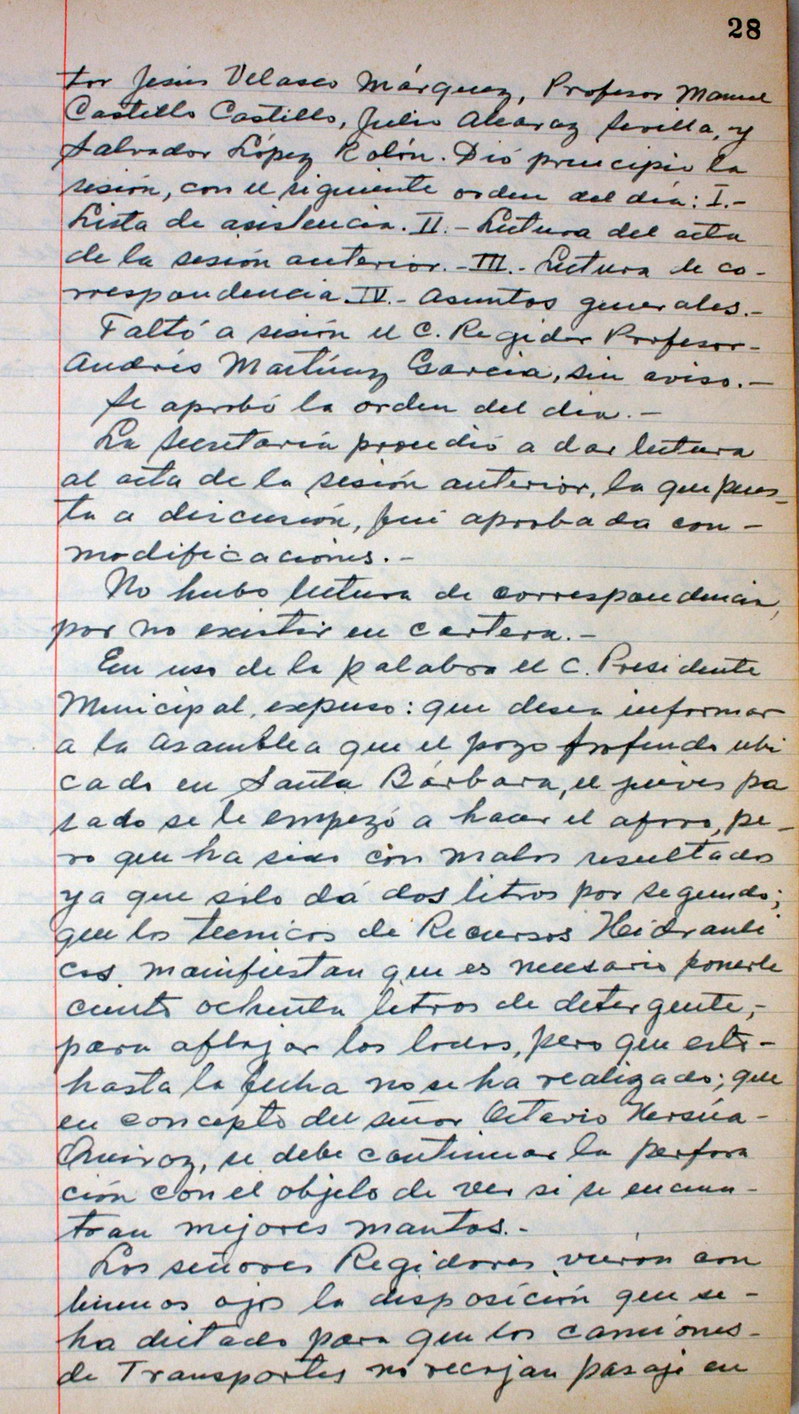 28
tor Jesús Velasco Márquez, Profesor Manuel
Castillo Castillo, Julio Alcaraz Sevilla, y
Salvador López Rolón. Dió principio la
sesión, con el siguiente orden del día: I.-
Lista de asistencia. II.- Lectura del acta
de la sesión anterior.- III.- Lectura de co-
rrespondencia IV.- Asuntos generales.-
Faltó a sesión el C. Regidor Profesor-
Andrés Martínez García, sin aviso.-
Se aprobó la orden del día.-
La Secretaría procedió a dar lectura
al acta de la sesión anterior, la que pues-
ta a discusión, fué aprobada con-
modificaciones.-
No hubo lectura de correspondencia,
por no existir en cartera.-
Em uso de la palabra el C. Presidente
Municipal, expuso: que desea informar
a la asamblea que el pozo profundo ubi
cado en Santa Bárbara, el jueves pa
sado se le empezó a hacer el aforo, pe-
ro que ha sido con malos resultados
ya que sólo dá dos litros por segundo;
que los tecnicos de Recursos Hidrauli
cos manifiestan que es necesario ponerle
ciento ochenta litros de detergente,-
para aflojar los lodos, pero que esto-
hasta la fecha no se ha realizado; que
en concepto del señor Octavio
Quiroz, se debe continuar la perfora
ción con el objeto de ver si se encuen-
tran mejores mantos.-
Los señores Regidores vieron con
buenos ojos la disposición que se-
ha dictado para que los camiones-
de Transportes no recojan pasaje en